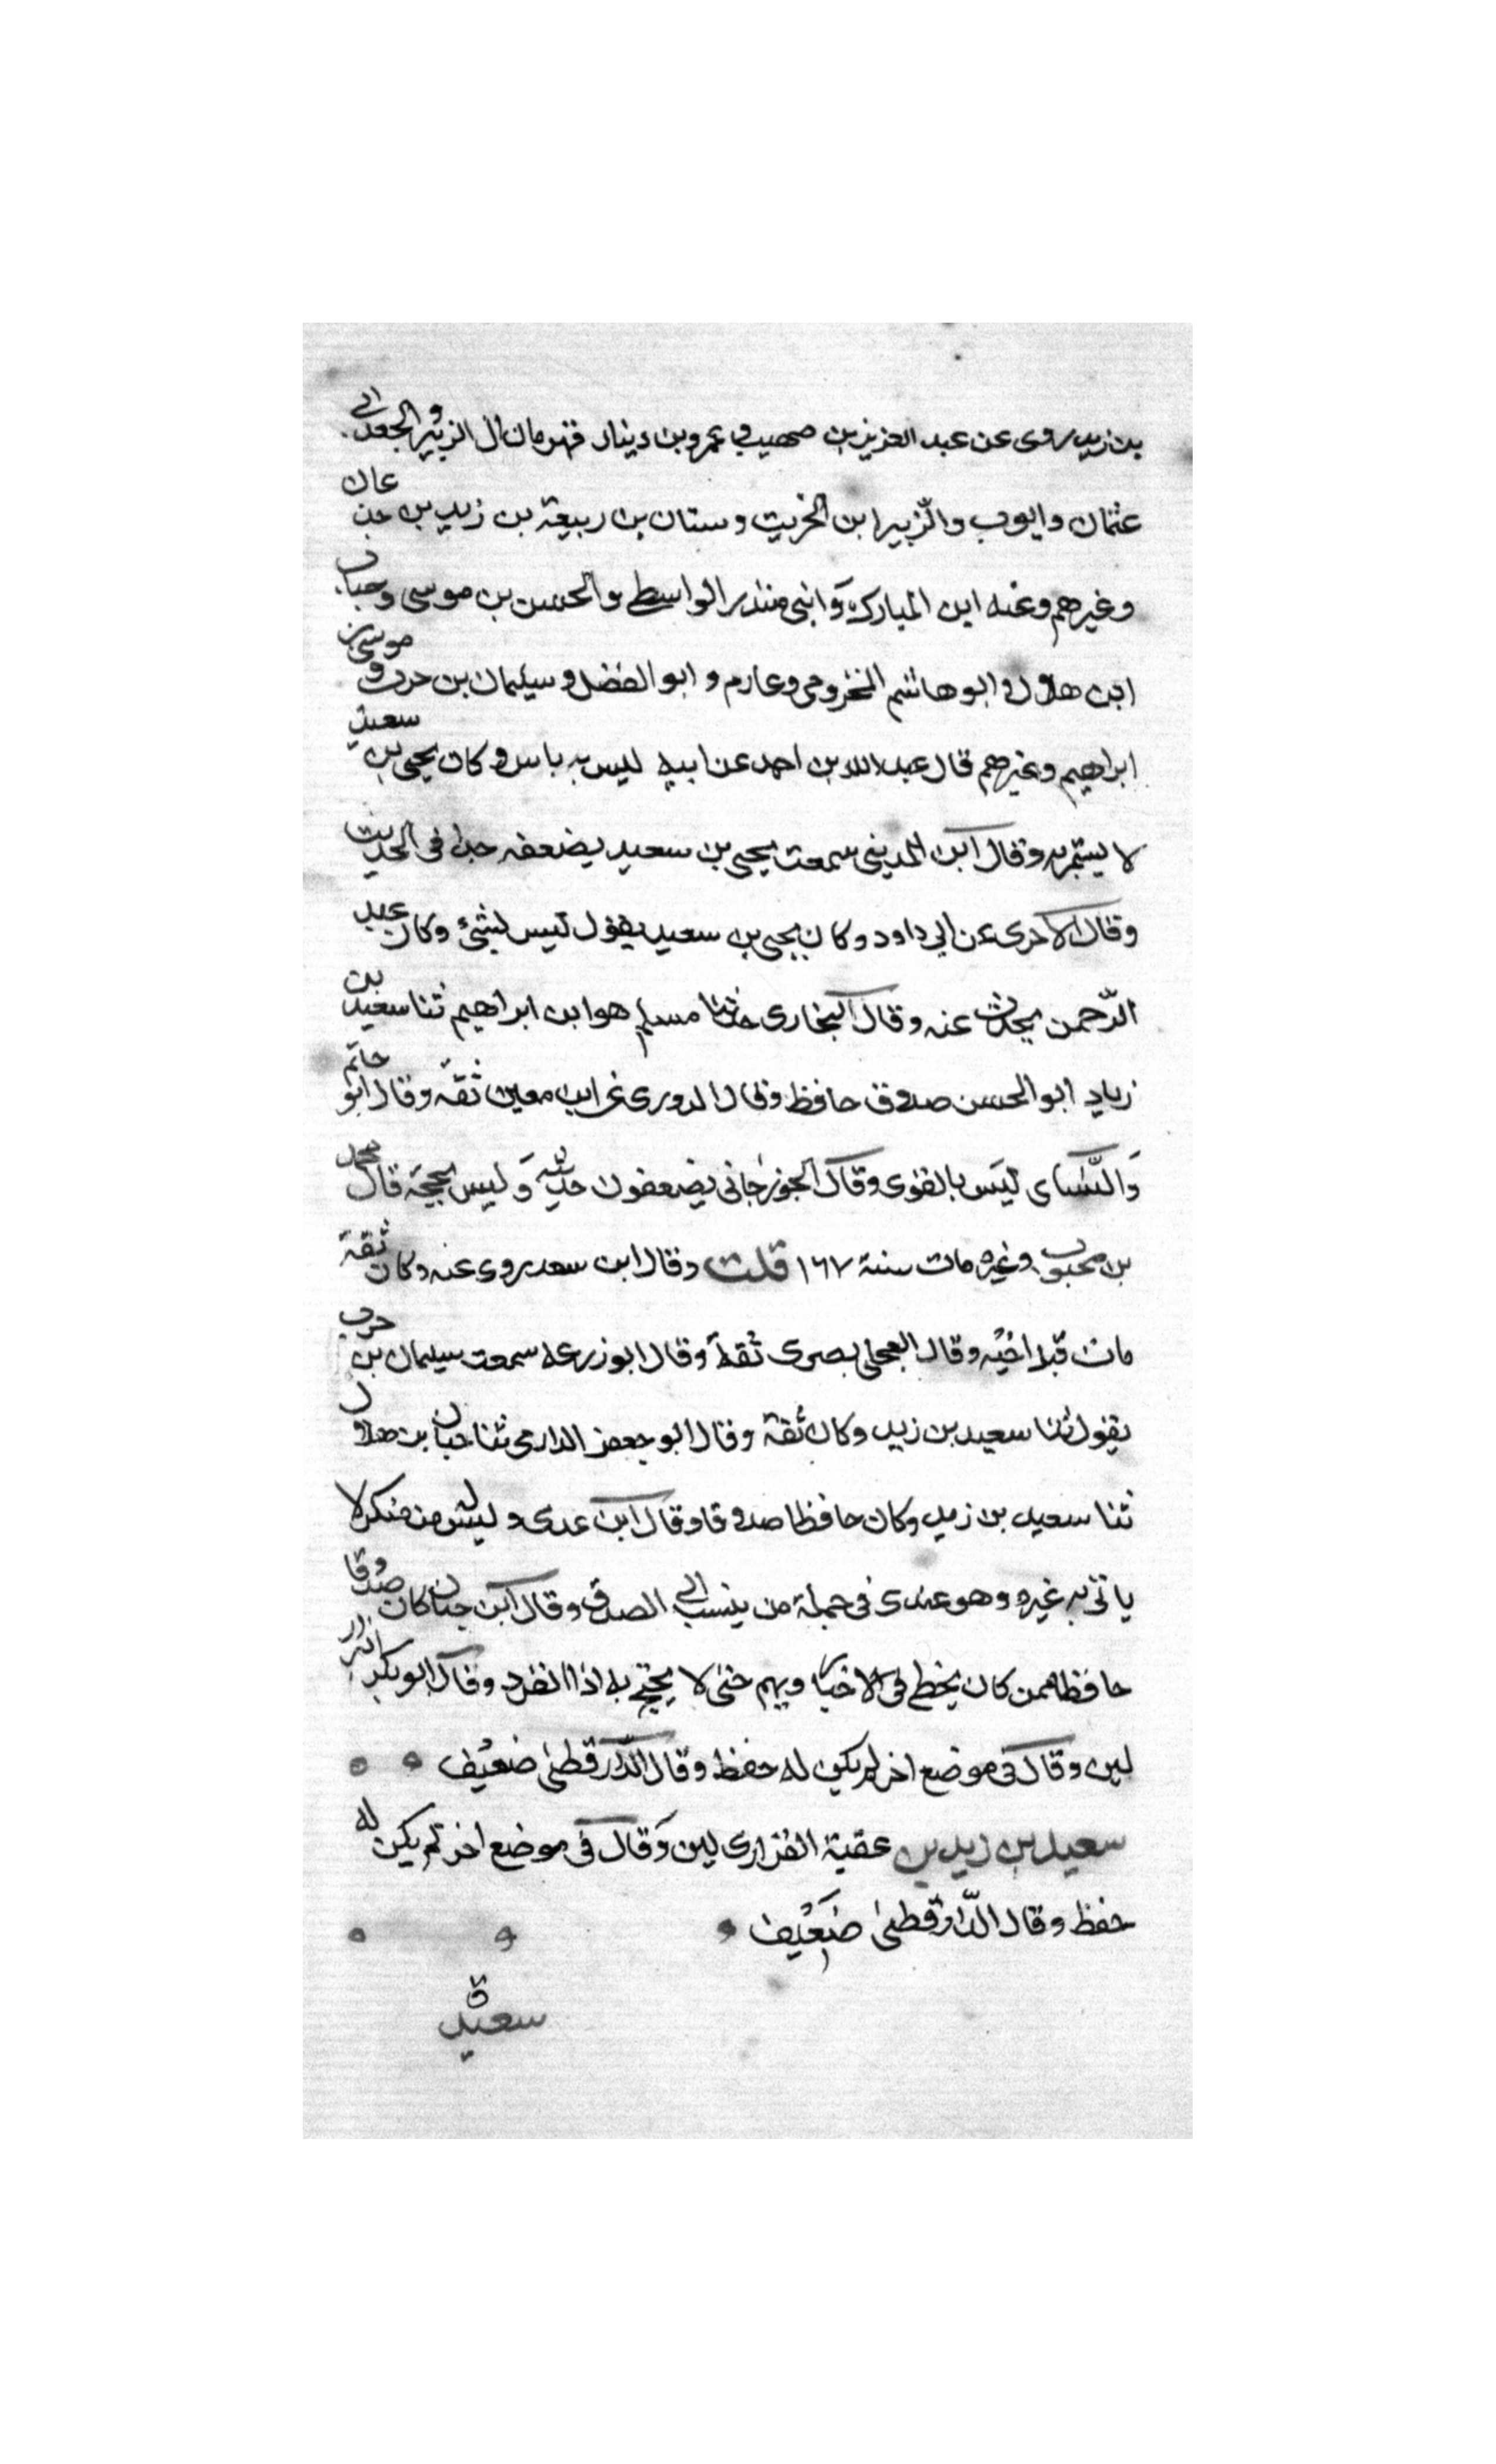 بن زيد روى عن عبد العزيز بن صهيب و عمرو بن دينار قهرمان ال الزبير و الجعد ابى
عثمان وايوب والزبير ابن الخريت وسنان بن ربيعة بن زيد بن جدعان
وغيرهم وعنه ابن المبارك وابنى منذر الواسطى والحسن بن موسى وحبان
ابن هلال وابو هاشم المخزومى وعارم وابو الفضل وسليمان بن حرب وموسى بن
ابراهيم وغيرهم قال عبد الله بن احمد عن ابيه ليس به باس وكان يحيى بن سعيد
لا يستمريه وقال ابن المدينى سمعت يحيى بن سعيد يضعفه جدا فى الحديث
وقال الاجرى عن ابى داود وكان يحيى بن سعيد يقول ليس بشئ وكان عبد
الرحمن يحدث عنه وقال البخارى حدثنا مسلم هو ابن ابراهيم ثنا سعيد بن
زيد ابو الحسن صدوق حافظ وقال الدورى عن ابن معين ثقة وقال ابو حاتم
والنسائ ليس بالقوى وقال الجوزجانى يضعفون حديثه وليس بحجة قال محمد
بن محبوب وغيره مات سنة ١٦٧ قلت وقال ابن سعد روى عنه وكان ثقة
مات قبل اخيه وقال العجلى بصرى ثقة وقال ابو زرعه سمعت سليمان بن حرب
يقول ثنا سعيد بن زيد وكان ثقة وقال ابو جعفر الدارمى ثنا حبان بن هلال
ثنا سعيد بن زيد وكان حافظا صدوقا وقال ابن عدى وليس له من منكر لا
ياتى به غيره وهو عندى فى جملة من ينسب الى الصدق وقال ابن حبان كان صدوقا
حافظا ممن كان يخطى فى الاخبار ويهم حتى لا يحتج به اذا انفرد وقال ابو بكر البزار
لين وقال فى موضع اخر لم يكن له حفظ وقال الدارقطنى ضعيف
سعيد بن زيد بن عقبة الفزارى لين وقال فى موضع اخر لم يكن له
حفظ وقال الدارقطنى ضعيف
سعيد